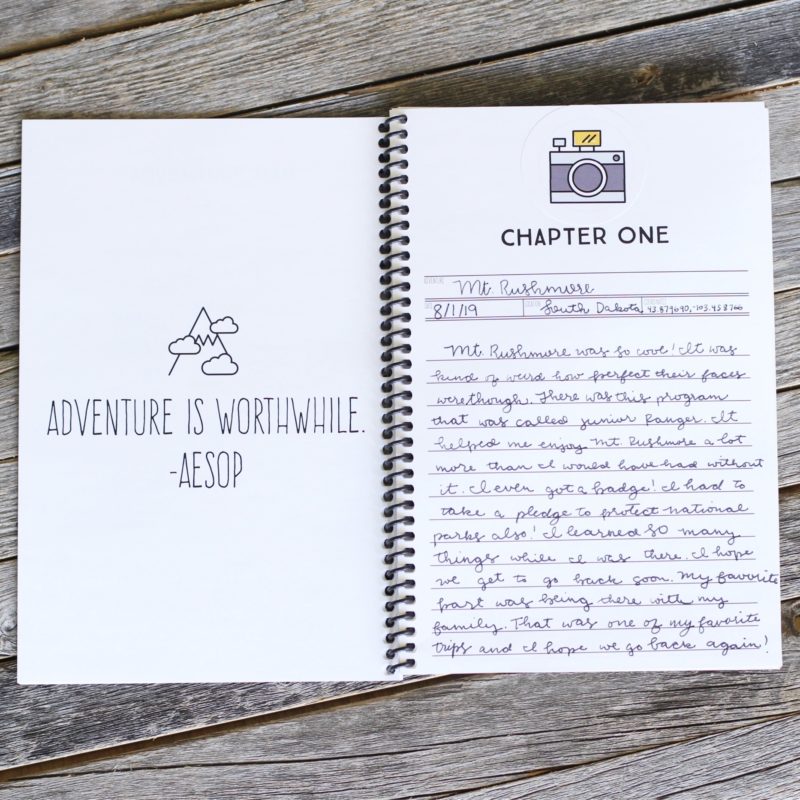 ADVENTURE IS WORTHWHILE.
-AESOP
CHAPTER ONE
ADVENTURE Mt. Rushmore
DATE 8/1/19 LOCATION South Dakota COORDINATES 43.879690,-103.458766
Mt. Rushmore was so cool! It was
kind of weird how perfect their faces
were though. There was this program
that was called Junior Ranger. It
helped me enjoy Mt. Rushmore a lot
more than I would have had without
it. I even got a badge! I had to
take a pledge to protect national
parks also! I learned SO many
things while I was there. I hope
we get to go back soon. My favorite
part was being there with my
family. That was one of my favorite
trips and I hope we go back again!